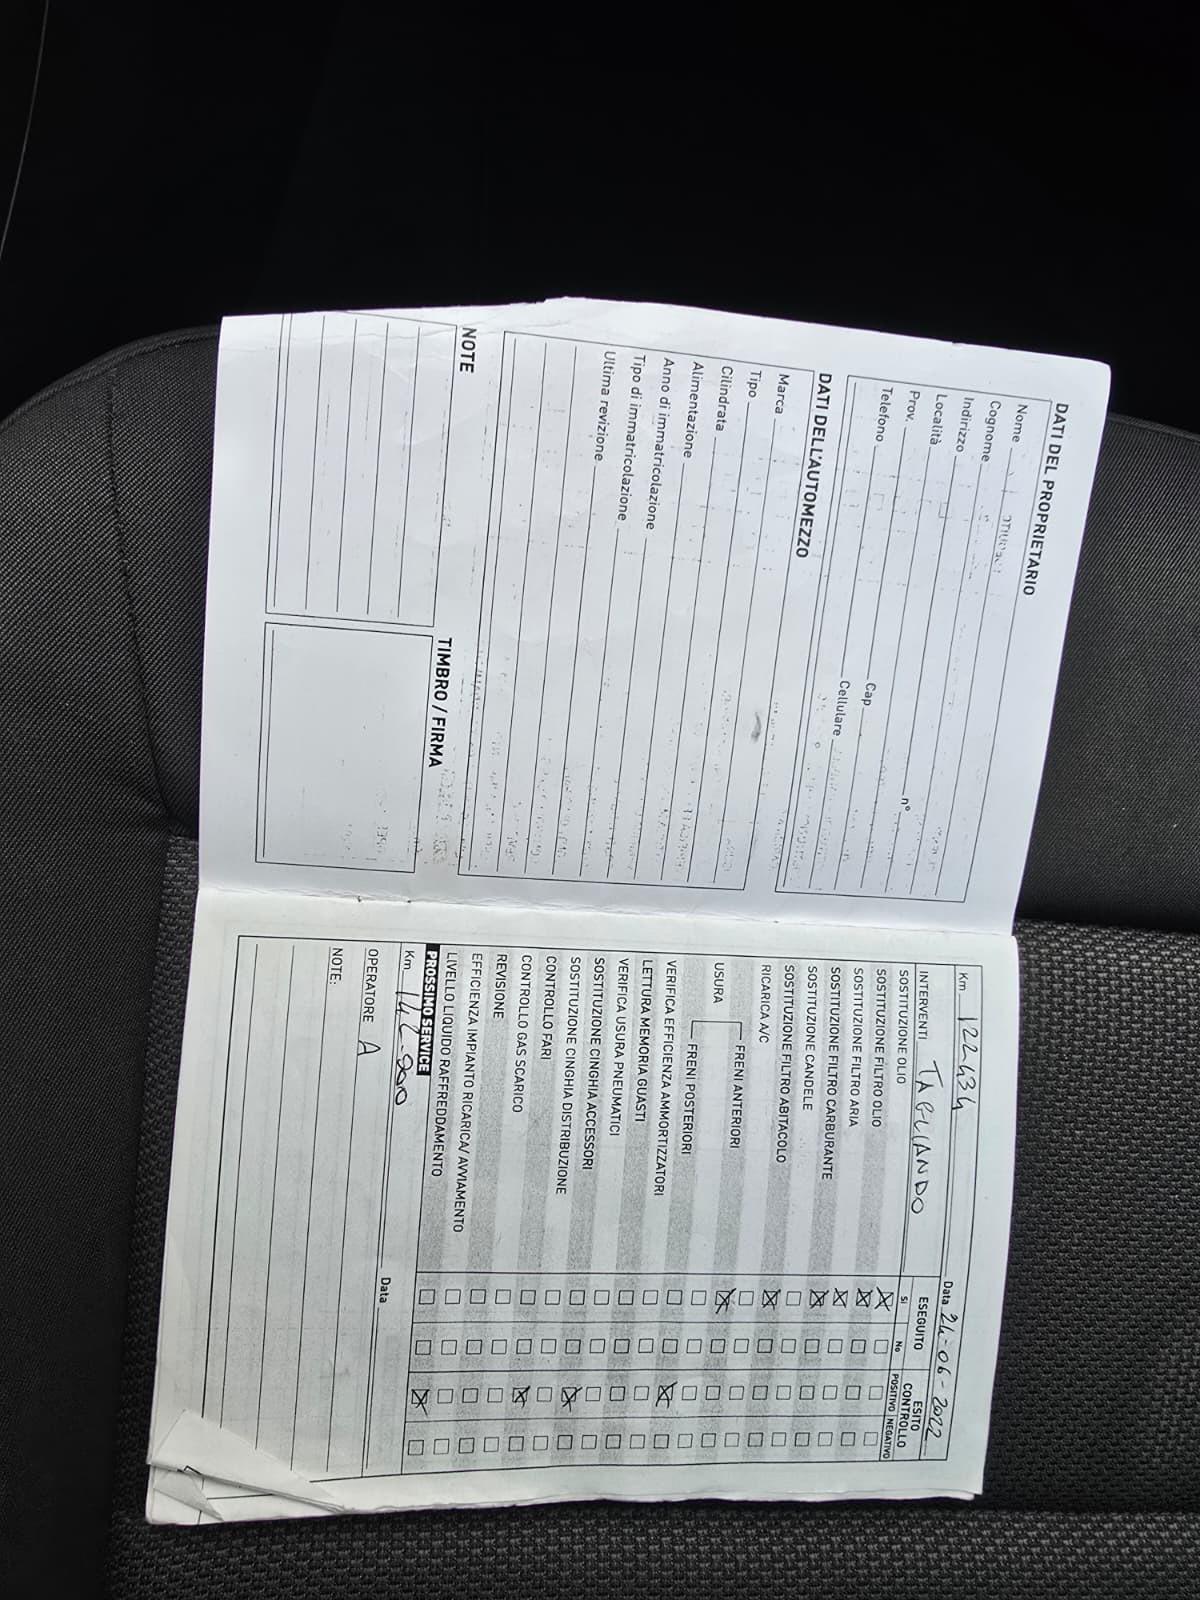 DATI DEL PROPRIETARIO
Nome
Cognome
Indirizzo
Località n°
Prov. Cap
Telefono Cellulare
DATI DELL'AUTOMEZZO
Marca
Tipo
Cilindrata
Alimentazione
Anno di immatricolazione
Tipo di immatricolazione
Ultima revisione
NOTE
TIMBRO / FIRMA
Km 122434 Data 24-06-2022
INTERVENTI TAGLIANDO ESEGUITO ESITO CONTROLLO
SI No POSITIVO NEGATIVO
SOSTITUZIONE OLIO
SOSTITUZIONE FILTRO OLIO
SOSTITUZIONE FILTRO ARIA
SOSTITUZIONE FILTRO CARBURANTE
SOSTITUZIONE CANDELE
SOSTITUZIONE FILTRO ABITACOLO
RICARICA A/C
FRENI ANTERIORI
USURA
FRENI POSTERIORI
VERIFICA EFFICIENZA AMMORTIZZATORI
LETTURA MEMORIA GUASTI
VERIFICA USURA PNEUMATICI
SOSTITUZIONE CINGHIA ACCESSORI
SOSTITUZIONE CINGHIA DISTRIBUZIONE
CONTROLLO FARI
CONTROLLO GAS SCARICO
REVISIONE
EFFICIENZA IMPIANTO RICARICA/ AVVIAMENTO
LIVELLO LIQUIDO RAFFREDDAMENTO
PROSSIMO SERVICE
Km 142-000 Data
OPERATORE A
NOTE: